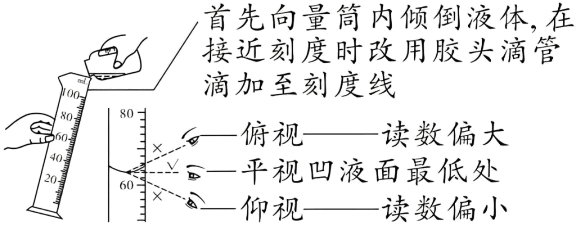 首先向量筒内倾倒液体,在
接近刻度时改用胶头滴管
滴加至刻度线
mL
100
80
60
40
20
80
60
俯视——读数偏大
平视凹液面最低处
仰视——读数偏小